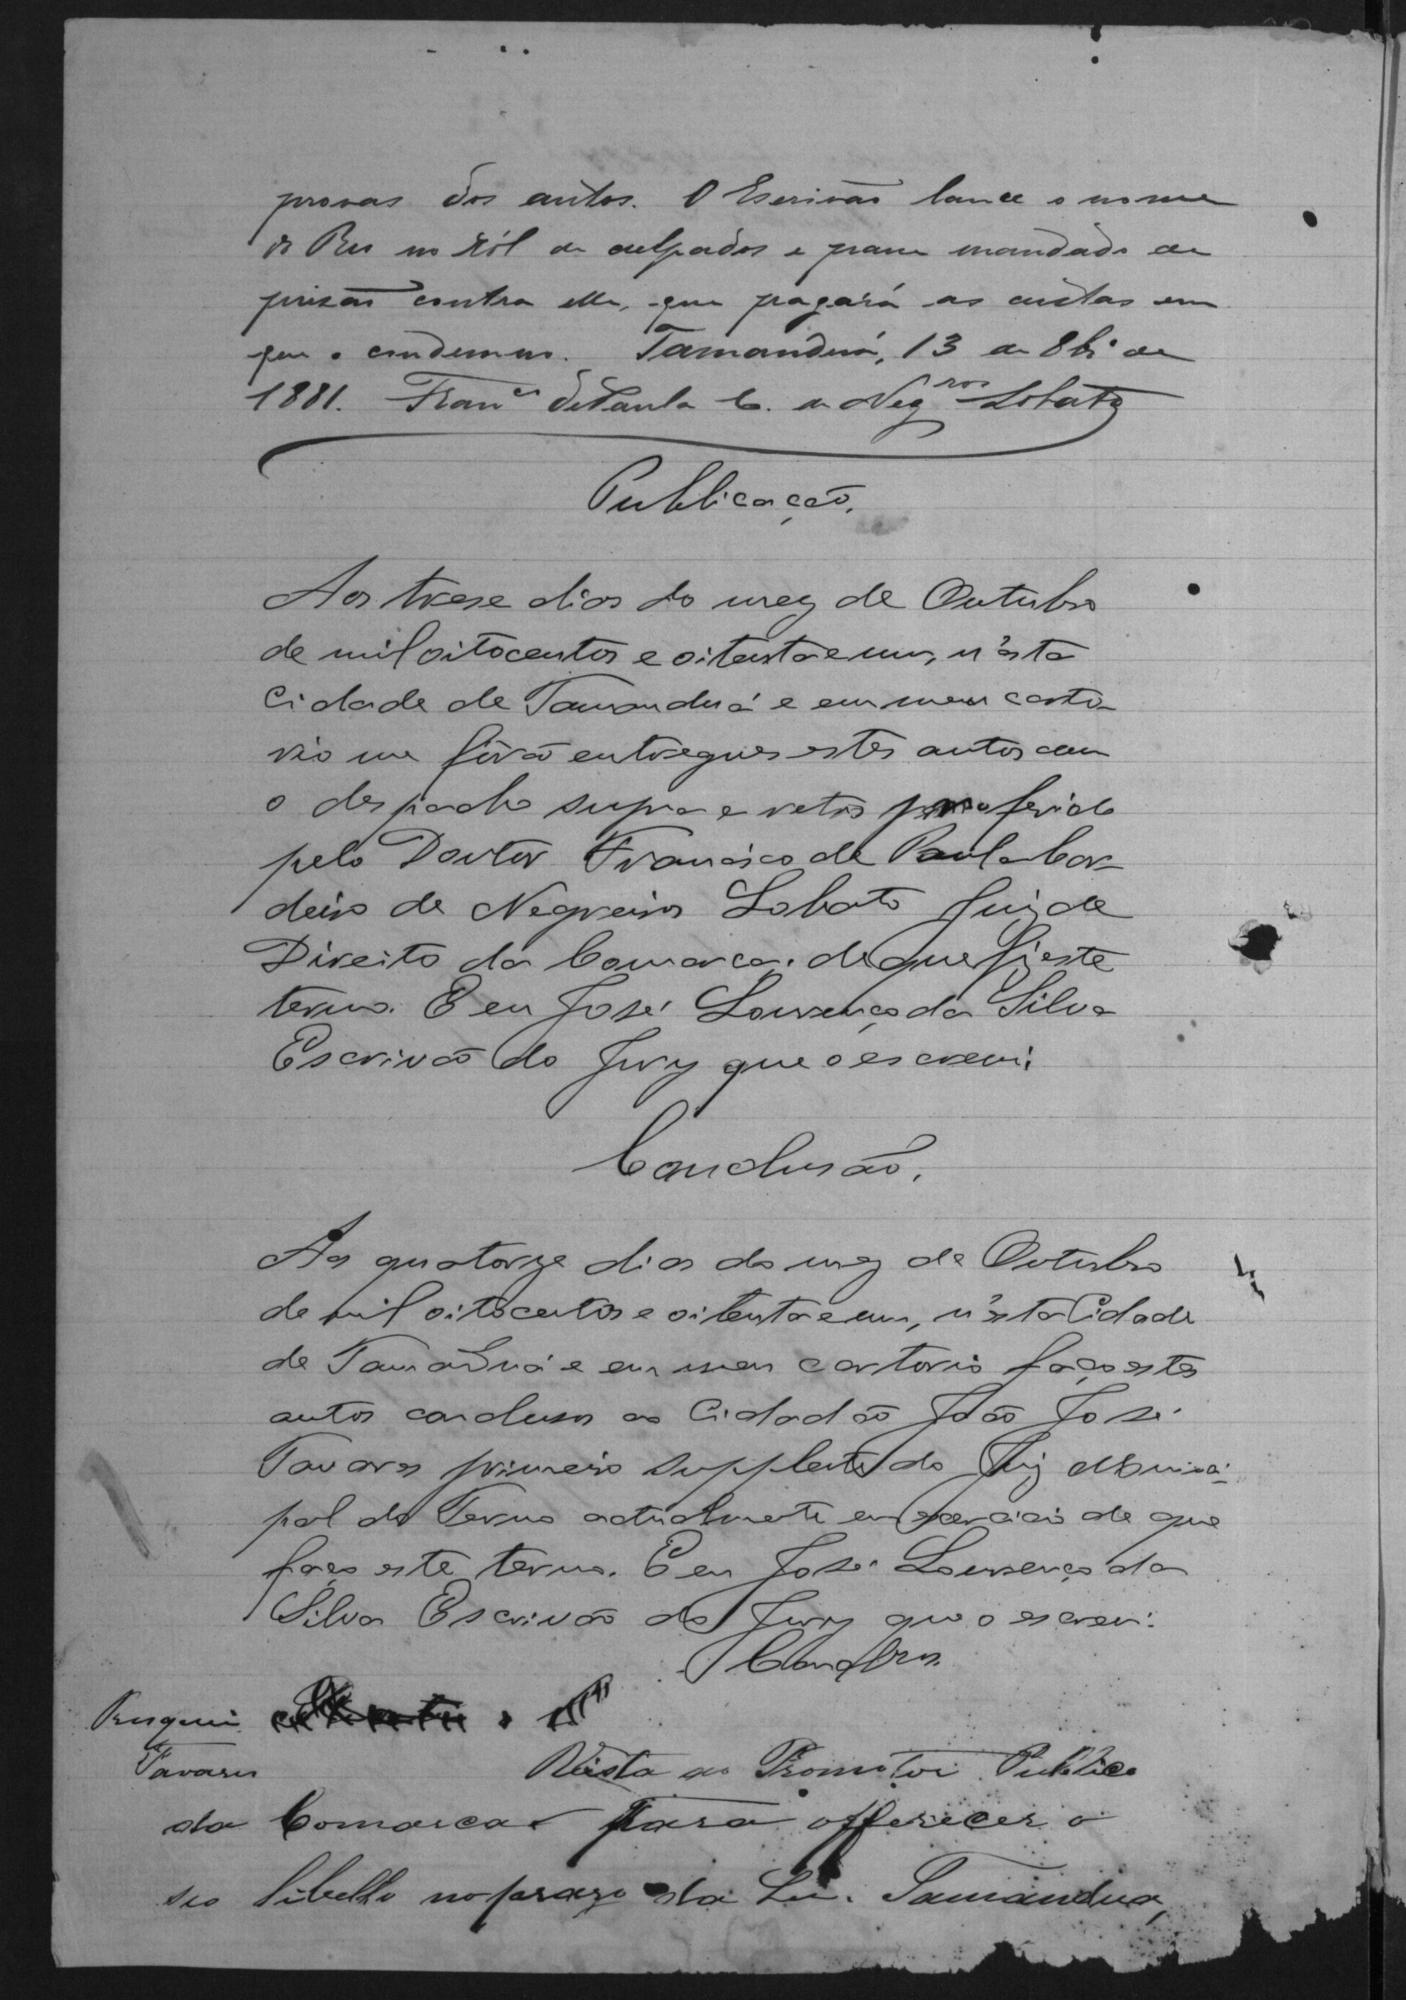 provas dos autos. O Escrivão lance o nome
do Reu no ról de culpados e passe mandado de
prisão contra elle, que pagará as custas em
que o condemno. Tamanduá, 13 de 8br.º de
1881. Fran.co de Paula C. de Neg.ros Lobato
Publicação.
Aos trese dias do mez de Outubro
de mil oitocentos e oitenta e um, n'esta
Cidade de Tamanduá e em meu carto-
rio me fôrão entregues estes autos com
o despacho supra e retro proferido
pelo Doutor Francisco de Paula Cor-
deiro de Negreiros Lobato Juiz de
Direito da Comarca. de que fiz este
termo. E eu José Lourenço da Silva
Escrivão do Jury que o escrevi.
Conclusão.
Aos quatorze dias do mez de Outubro
de mil oitocentos e oitenta e um, n'esta Cidade
de Tamanduá e em meu cartorio faço estes
autos conclusos ao Cidadão João José
Tavares primeiro supplente do Juiz Munici-
pal do Termo actualmente em exercicio de que
faço este termo. E eu José Lourenço da
Silva Escrivão do Jury que o escrevi.
Conclusos.
Tavares
Vista ao Promotor Publico
da Comarca para offerecer o
seo libello no prazo da Lei. Tamandua,